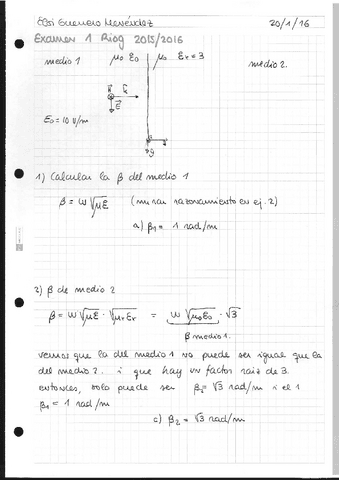 Elsi Guerrero Menéndez 20/1/16
Examen 1 Riog 2015/2016
medio 1 μ₀ ε₀ μ₀ εr = 3 medio 2.
E₀ = 10 V/m E
y
1) Calcular la β del medio 1
β = w√με (mirar razonamiento en ej. 2)
a) β₁ = 1 rad/m
2) β de medio 2
β = w√με · √μrεr = w√μ₀ε₀ · √3
β medio 1.
vemos que la del medio 1 no puede ser igual que la
del medio 2. i que hay un factor raiz de 3.
entonces, solo puede ser β₂ = √3 rad/m i el 1
β₁ = 1 rad/m
c) β₂ = √3 rad/m